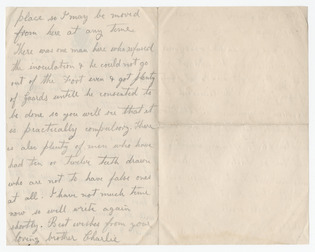 place so I may be moved
from here at any time
There was one man here who refused
the inoculation & he could not go
out of the Foot even & got plenty
of guards untill he consented to
be done so you will see that it
is practically compulsory. There
is also plenty of men who have
had ten or twelve teeth drawn
who are not to have false ones
at all. I have not much time
now so will write again
shortly. Best wishes from your
loving brother Charlie